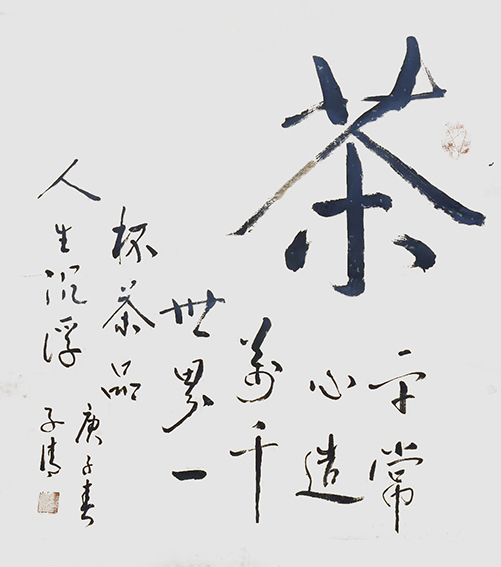 茶
平常
心造
萬千
世界一
杯茶品
人生沉浮
庚子春
子